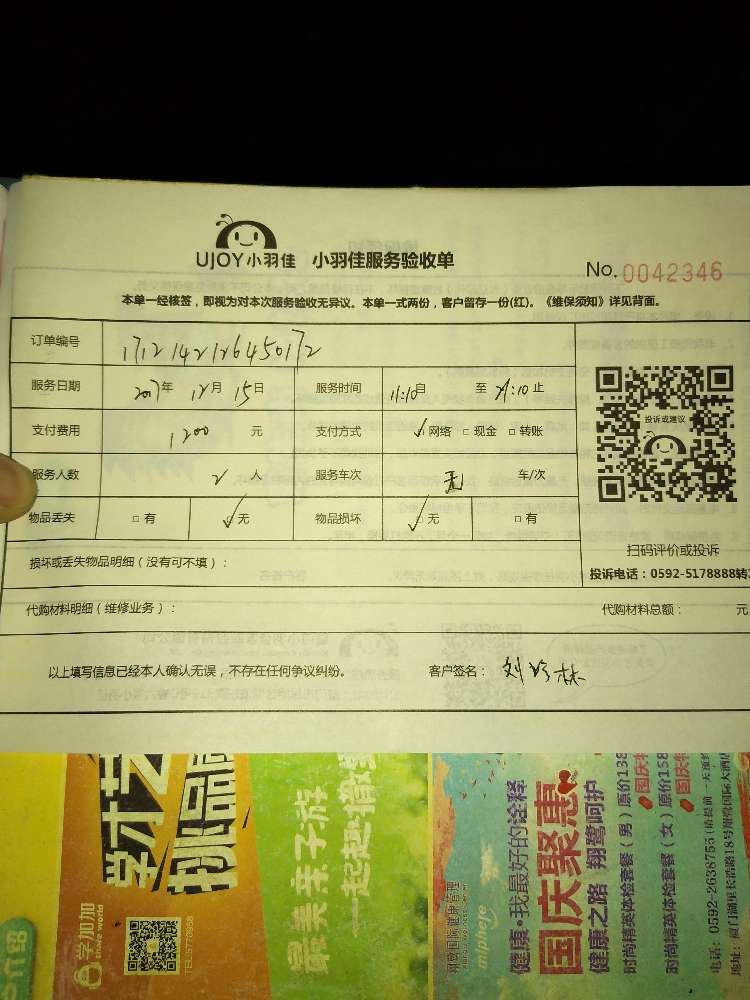 UJOY小羽佳 小羽佳服务验收单
No. 0042346
本单一经核签，即视为对本次服务验收无异议。本单一式两份，客户留存一份(红)。《维保须知》详见背面。
订单编号
服务日期 2017年 12月 15日 服务时间 自 至 止
支付费用 1200 元 支付方式 ☑ 网络 □ 现金 □ 转账
服务人数 2 人 服务车次 无 车/次
物品丢失 □ 有 ☑ 无 物品损坏 ☑ 无 □ 有
投诉或建议
扫码评价或投诉
投诉电话：0592-5178888转
损坏或丢失物品明细（没有可不填）：
代购材料明细（维修业务）： 代购材料总额： 元
以上填写信息已经本人确认无误，不存在任何争议纠纷。 客户签名：
学才艺
挑品
学加加
share world
最美亲子游
一起趣
mipheje
健康·我最好的诠释
国庆聚惠
健康之路 翔鹭呵护
时尚精英体检套餐（男）原价138
时尚精英体检套餐（女）原价158
国庆
国庆
电话：0592-2638755